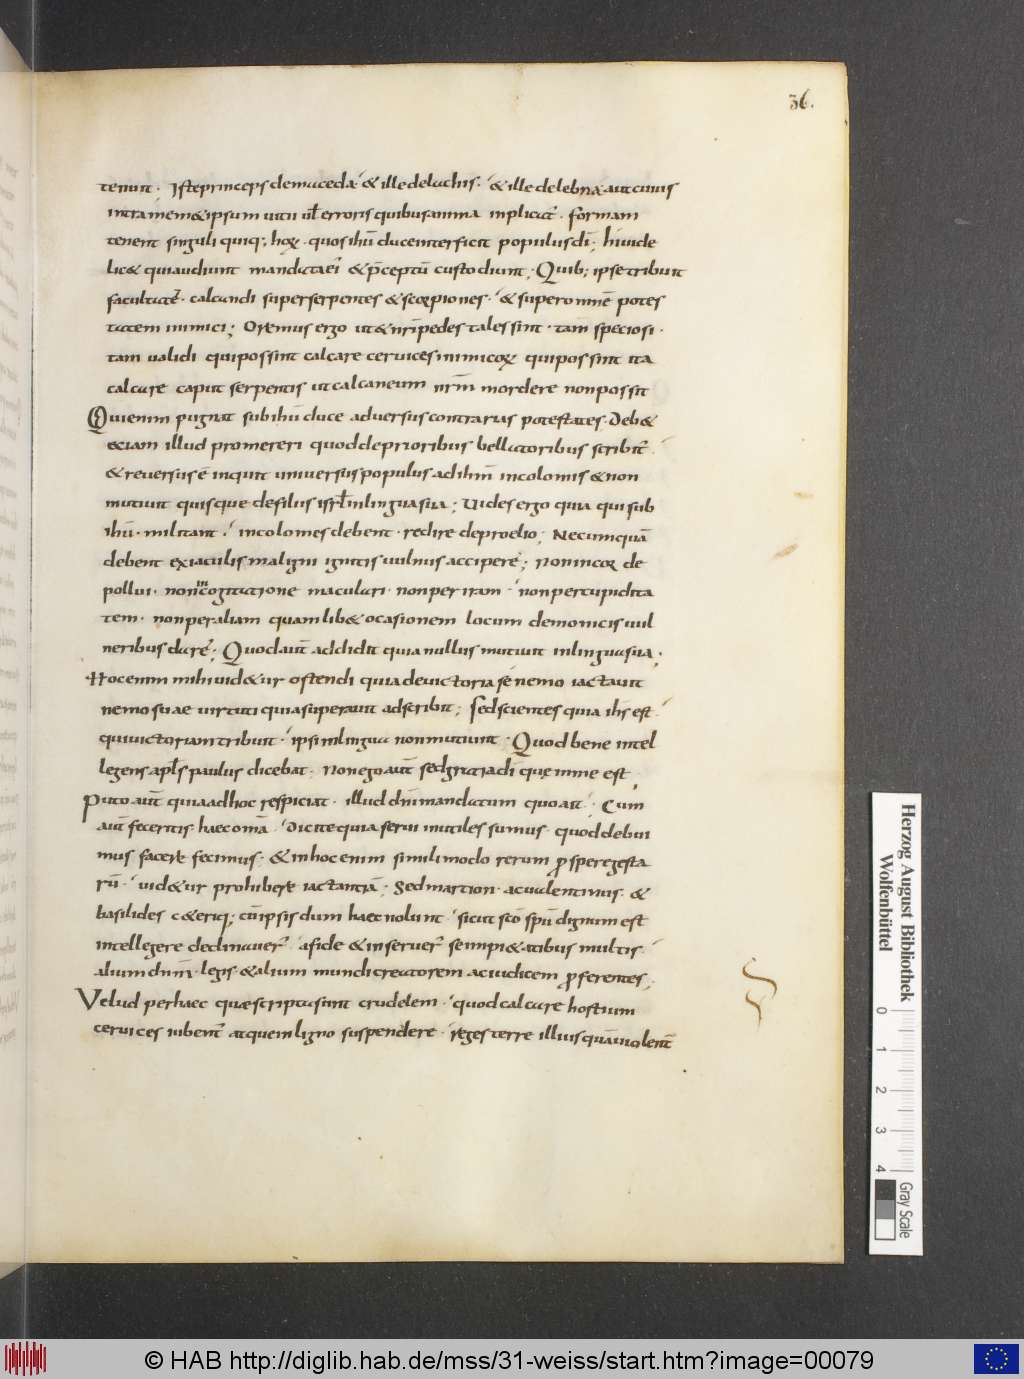 36.
tenuit. Iste princeps demaceda & ille delachis. & ille delebna aut cuius
intra mem& ipsum uitii ul erroris quibus anima inplicat. formam
tenent singuli quiq; hoꝝ. quos ihū duce interficit populus di; hi uide
lic& qui audiunt mandata ei & pceptū custodiunt; Quib; ipse tribuit
facultatē. calcandi super serpentes & scorpiones. & super omnē potes
tatem inimici; Oremus ergo ut & nri pedes tales sint. tam speciosi.
tam ualidi qui possint calcare cervices inimicoꝝ qui possint ita
calcare caput serpentis ut calcaneum nrm mordere non possit
Qui enim pugnat sub ihū duce aduersus contrarias potestates. Deb&
eciam illud promereri quod de prioribus bellatoribus scribit.
& reuersus ē inquit uniuersus populus ad ihm incolomis & non
mutiuit quisque de filiis isrl in lingua sua; Uides ergo quia qui sub
ihū. militant. incolomes debent. redire de proelio; Nec umquā
debent ex iaculis maligni ignitis uulnus accipere; Non in cor de
pollui. non in cogitatione maculari. non per iram. non per cupidita
tem. non per aliam quam lib& ocasionem locum demonicis uul
neribus dare; Quod aut addidit quia nullus mutiuit in lingua sua;
Hoc enim mihi uid&ur ostendi quia de uictoria sē nemo iactauit
nemo suae uirtuti quia superauit adscribit; Sed scientes quia ihs est
qui uictoriam tribuit. ipsi in lingua non mutiunt. Quod bene intel
legens apls paulus dicebat. Non ego aut sed gratia di quę mme est.
Puto aut quia ad hoc respiciat. illud dni mandatum quo ait. Cum
aut feceritis. haec omā. Dicite quia serui inutiles sumus. quod debui
mus facere fecimus. & in hoc enim simili modo rerum ꝓspere gesta
rū. uid&ur prohibere iactantiā; Sed martion. ac ualentinus. &
basilides c&eriq; cū ipsis dum haec nolunt. sicut sco spū dignum est
intellegere declinauer. a fide & inseruer se inpi&atibus multis.
alium dnm legis. & alium mundi creatorem ac iudicem ꝓferentes;
Velud per haec quae scripta sunt crudelem. quod calcare hostium
ceruices iubent atque in ligno suspendere. reges terre illius quā uiolent
Herzog August Bibliothek
Wolfenbüttel
0 1 2 3 4
Gray Scale
© HAB http://diglib.hab.de/mss/31-weiss/start.htm?image=00079